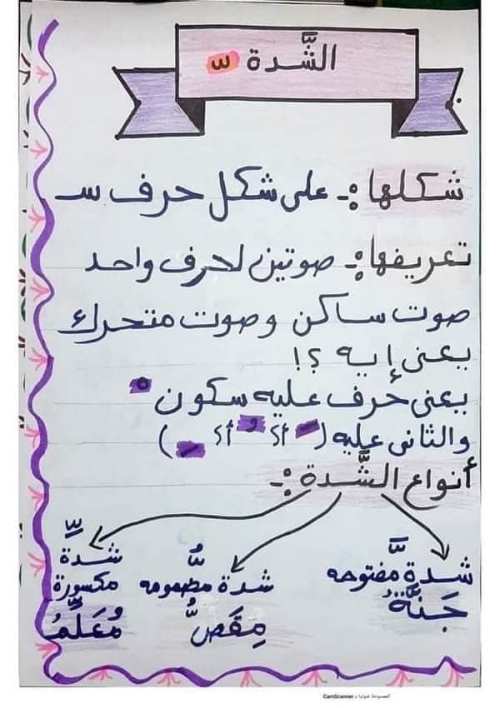 الشَّدة س
شكلها :- على شكل حرف سـ
تعريفها :- صوتين لحرف واحد
صوت ساكن وصوت متحرك
يعنى إيه ؟!
يعنى حرف عليه سكون ْ
والثانى عليه ( َ أ؟ ُ أ؟ ِ )
أنواع الشَّدة :-
شدة مفتوحه َّ
جَنَّةُ
شدة مضمومه ُّ
مِقَصُّ
شدة مكسورة ِّ
مُعَلِّمُ
الممسوحة ضوئيا بـ CamScanner